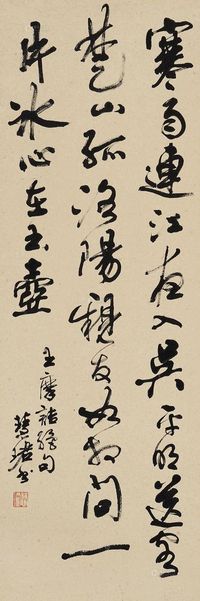 寒雨連江夜入吳平明送客
楚山孤洛陽親友如相問一
片冰心在玉壺
王摩詰絕句
慧珺書